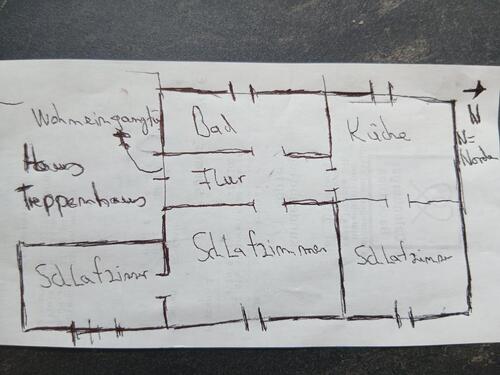 Wohneingangtü
Bad
Küche
N
N=
Norden
Haus
Treppenhaus
Flur
Schlafzimmer
Schlafzimmer
Schlafzimmer